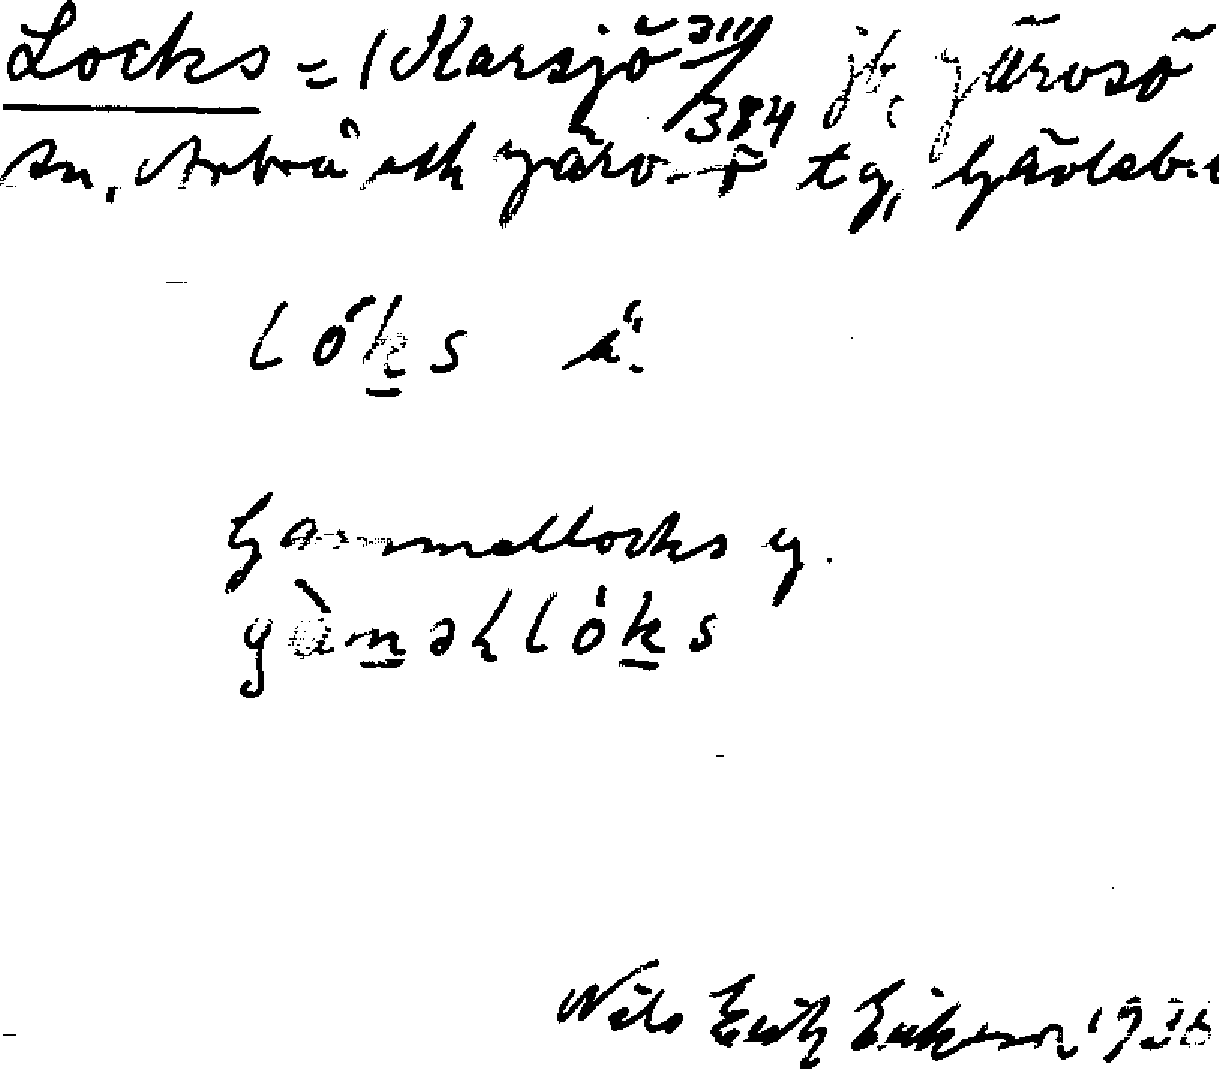 Locks = (Karsjö 3¹¹/384 jb, Järvsö
sn, Arbrå och Järvsö tg, Gävleb. l
lóks ä.
Gammellocks g.
gàməllóks
Nils Erik Eriksson 1936